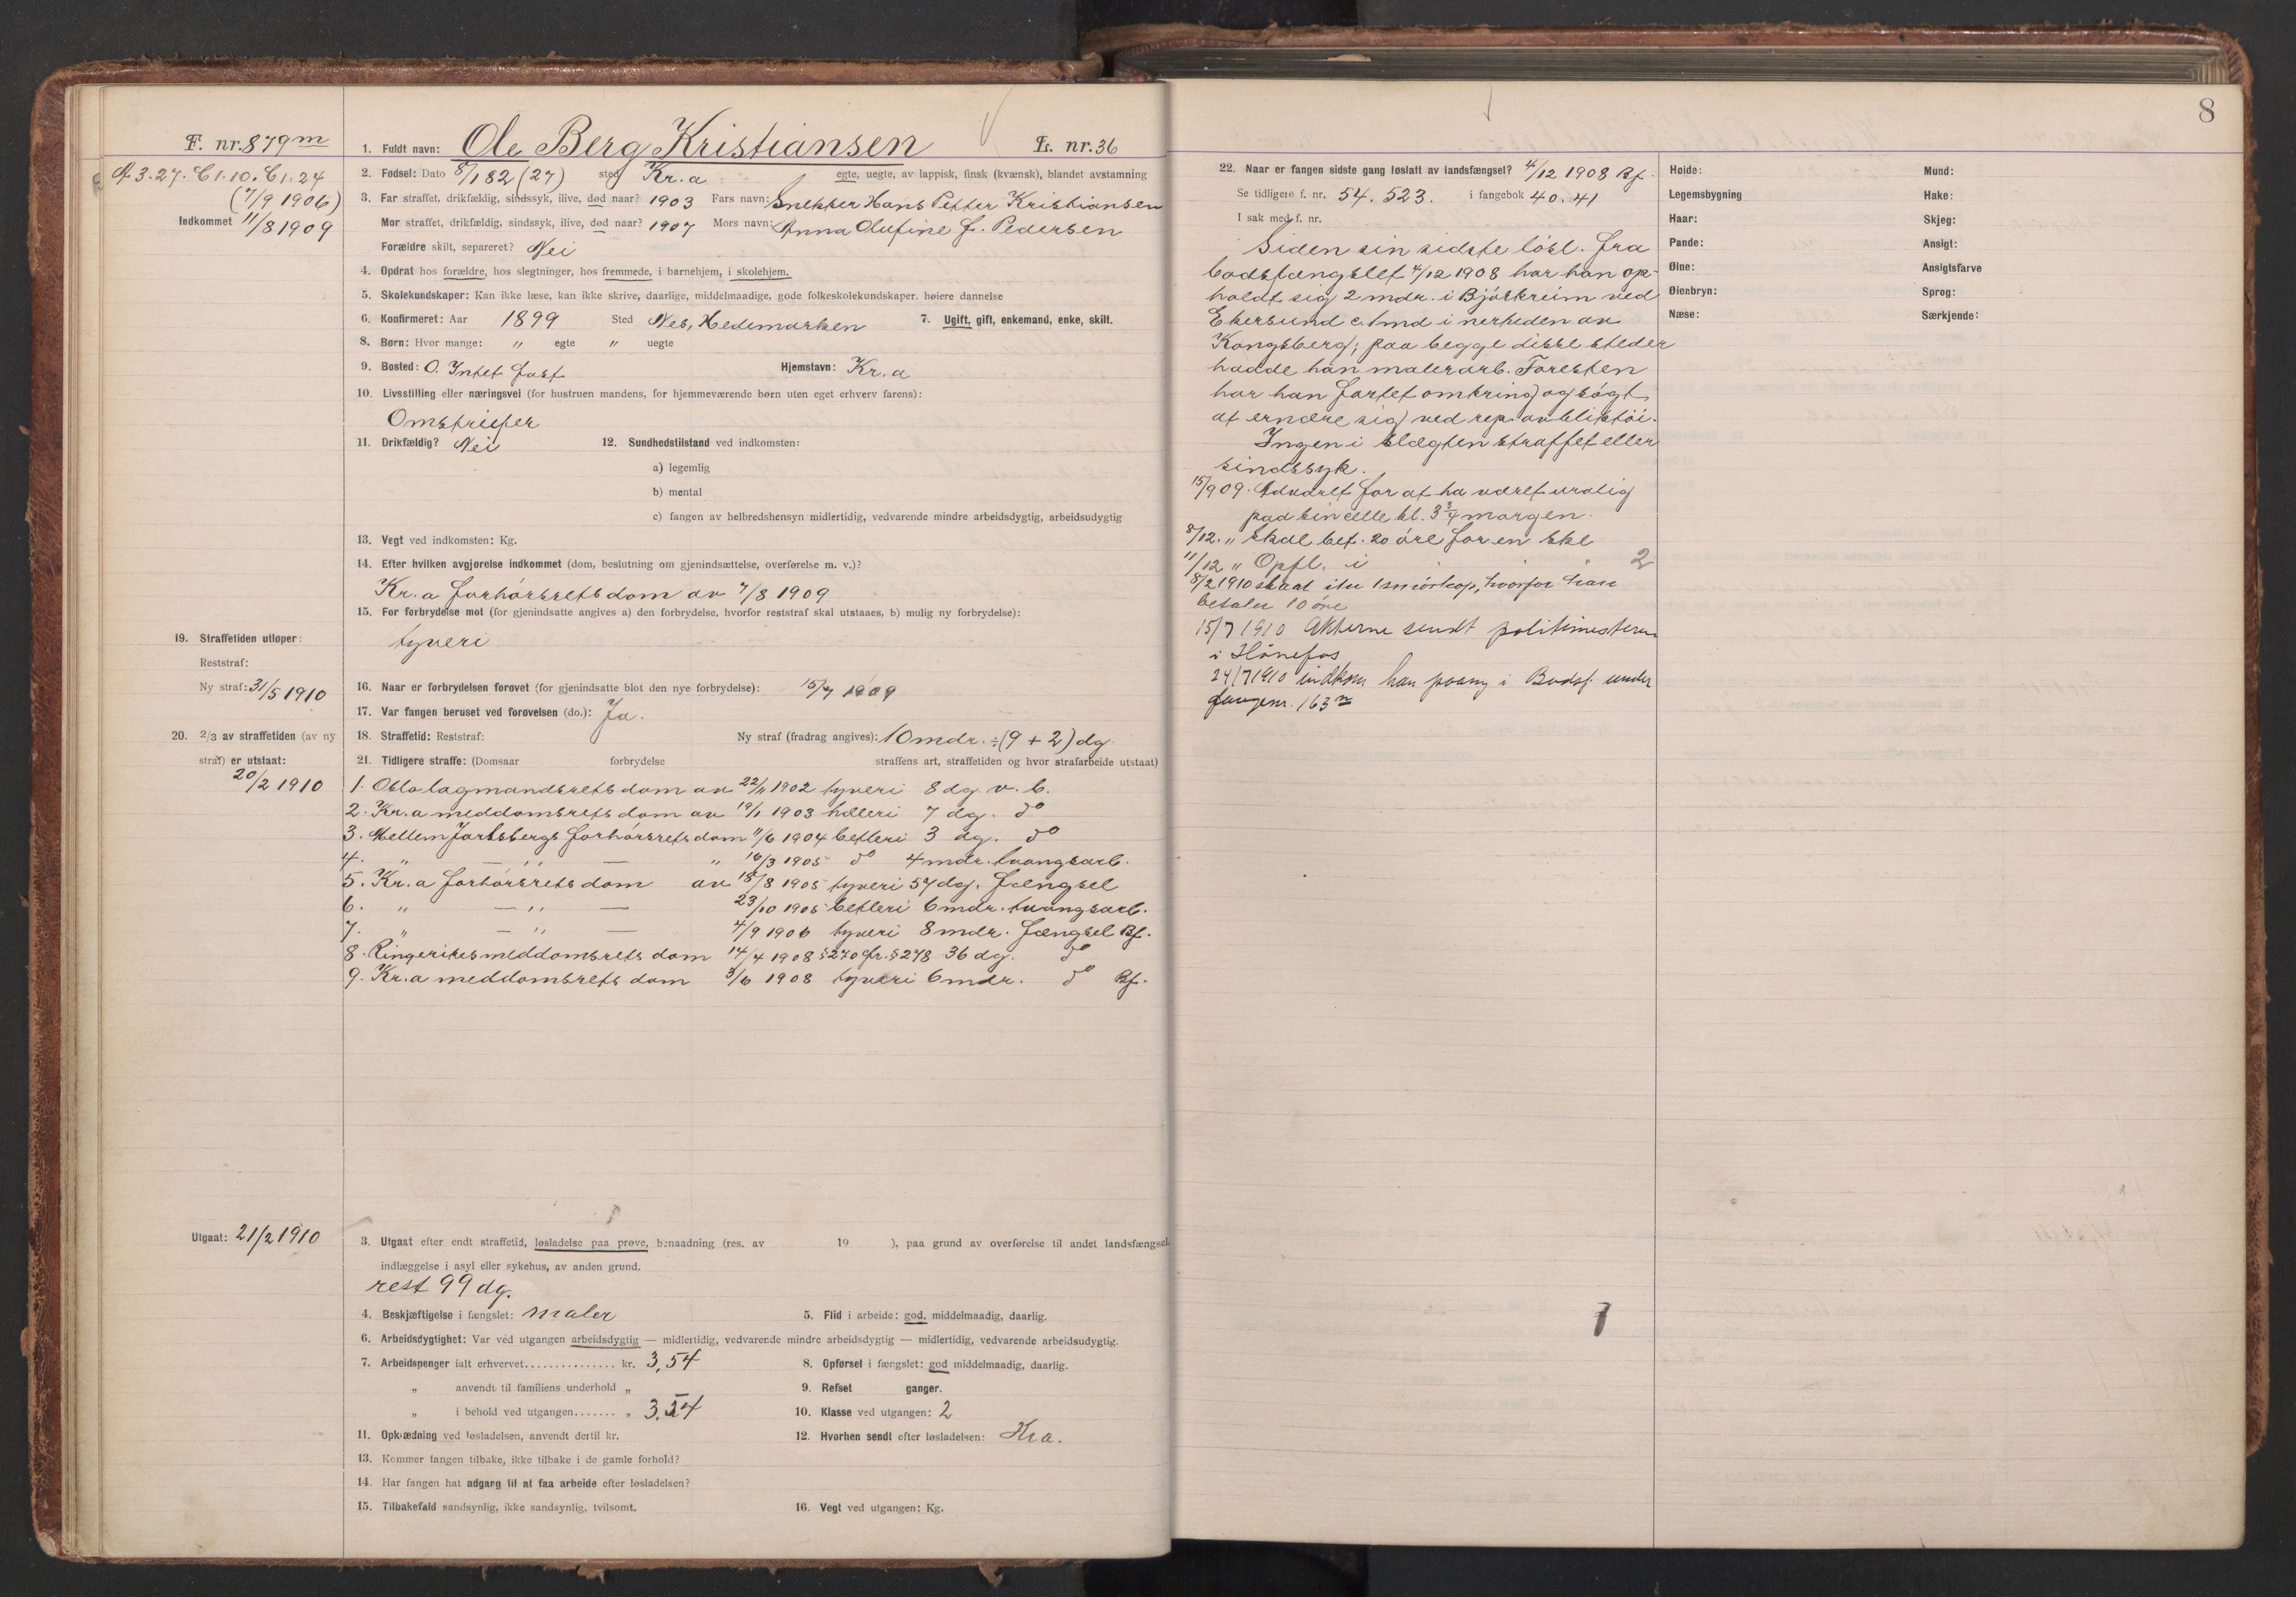 8
F. nr. 879 m
A. 3.27. C 1.10. C 1.24
(7/9 1906)
Indkommet 11/8 1909
1. Fuldt navn: Ole Berg Kristiansen L. nr. 36
2. Fødsel: Dato 8/1 82 (27) sted Kr.a egte, uegte, av lappisk, finsk (kvænsk), blandet avstamning
3. Far straffet, drikfældig, sindssyk, ilive, død naar? 1903 Fars navn: Snekker Hans Petter Kristiansen
Mor straffet, drikfældig, sindssyk, ilive, død naar? 1907 Mors navn: Anna Olufine f. Pedersen
Forældre skilt, separeret? Nei
4. Opdrat hos forældre, hos slegtninger, hos fremmede, i barnehjem, i skolehjem.
5. Skolekundskaper: Kan ikke læse, kan ikke skrive, daarlige, middelmaadige, gode folkeskolekundskaper. høiere dannelse
6. Konfirmeret: Aar 1899 Sted Nes, Hedemarken 7. Ugift, gift, enkemand, enke, skilt.
8. Børn: Hvor mange: " egte " uegte
9. Bosted: O. Intet fast Hjemstavn: Kr.a
10. Livsstilling eller næringsvei (for hustruen mandens, for hjemmeværende børn uten eget erhverv farens):
Omstreifer
11. Drikfældig? Nei 12. Sundhedstilstand ved indkomsten:
a) legemlig
b) mental
c) fangen av helbredshensyn midlertidig, vedvarende mindre arbeidsdygtig, arbeidsudygtig
13. Vegt ved indkomsten: Kg.
14. Efter hvilken avgjørelse indkommet (dom, beslutning om gjenindsættelse, overførelse m. v.)?
Kr.a forhørsrets dom av 7/8 1909
15. For forbrydelse mot (for gjenindsatte angives a) den forbrydelse, hvorfor reststraf skal utstaaes, b) mulig ny forbrydelse):
tyveri
19. Straffetiden utløper:
Reststraf:
Ny straf: 31/5 1910
16. Naar er forbrydelsen forøvet (for gjenindsatte blot den nye forbrydelse): 15/7 1909
17. Var fangen beruset ved forøvelsen (do.): Ja.
18. Straffetid: Reststraf: Ny straf (fradrag angives): 10 mdr. ÷ (9 + 2) dg.
20. 2/3 av straffetiden (av ny
straf) er utstaat:
20/2 1910
21. Tidligere straffe: (Domsaar forbrydelse straffens art, straffetiden og hvor strafarbeide utstaat)
1. Oslo lagmandsrets dom av 22/11 1902 tyveri 8 dg. v. b.
2. Kr.a meddomsrets dom av 19/1 1903 hæleri 7 dg. do
3. Mellem Jarlsbergs forhørsrets dom 11/6 1904 betleri 3 dg. do
4. " — " — " 16/3 1905 do 4 mdr. tvangsarb.
5. Kr.a forhørsrets dom av 18/8 1905 tyveri 57 dg. fængsel
6. " — " — 23/10 1905 betleri 6 mdr. tvangsarb.
7. " — " — 4/9 1906 tyveri 8 mdr. fængsel Bf.
8. Ringerikes meddomsrets dom 14/4 1908 § 270 jfr. § 278 36 dg. do
9. Kr.a meddomsrets dom 3/6 1908 tyveri 6 mdr. do Bf.
Utgaat: 21/2 1910
3. Utgaat efter endt straffetid, løsladelse paa prøve, benaadning (res. av 19 ), paa grund av overførelse til andet landsfængsel
indlæggelse i asyl eller sykehus, av anden grund.
rest 99 dg.
4. Beskjæftigelse i fængslet: maler 5. Flid i arbeide: god, middelmaadig, daarlig.
6. Arbeidsdygtighet: Var ved utgangen arbeidsdygtig — midlertidig, vedvarende mindre arbeidsdygtig — midlertidig, vedvarende arbeidsudygtig.
7. Arbeidspenger ialt erhvervet............... kr. 3,54 8. Opførsel i fængslet: god middelmaadig, daarlig.
" anvendt til familiens underhold " 9. Refset ganger.
" i behold ved utgangen....... " 3,54 10. Klasse ved utgangen: 2
11. Opklædning ved løsladelsen, anvendt dertil kr. 12. Hvorhen sendt efter løsladelsen: Kra.
13. Kommer fangen tilbake, ikke tilbake i de gamle forhold?
14. Har fangen hat adgang til at faa arbeide efter løsladelsen?
15. Tilbakefald sandsynlig, ikke sandsynlig, tvilsomt. 16. Vegt ved utgangen: Kg.
22. Naar er fangen sidste gang løslatt av landsfængsel? 4/12 1908 Bf.
Se tidligere f. nr. 54. 523. i fangebok 40. 41
I sak med f. nr.
Siden sin sidste løsl. fra
bodsfængslet 4/12 1908 har han op-
holdt sig 2 mdr. i Bjørkreim ved
Ekersund c. 1 md i nerheden av
Kongsberg; paa begge disse steder
hadde han malerarb. Foresten
har han fartet omkring og søgt
at ernære sig ved rep. av bliktøi.
Ingen i slægten straffet eller
sindssyk.
15/9 09. Advaret for at ha været urolig
paa sin celle kl. 3 3/4 morgen.
8/12. " Skal bet. 20 øre for en ske
11/12 " Opfl. i 2
8/2 1910 slaat itu 1 smørkop, hvorfor han
betaler 10 øre
15/7 1910 Akterne sendt politimesteren
i Hønefos
24/7 1910 indkom han paany i Bodsf. under
fangenr. 163 n
Høide:
Legemsbygning
Haar:
Pande:
Øine:
Øienbryn:
Næse:
Mund:
Hake:
Skjeg:
Ansigt:
Ansigtsfarve
Sprog:
Særkjende: